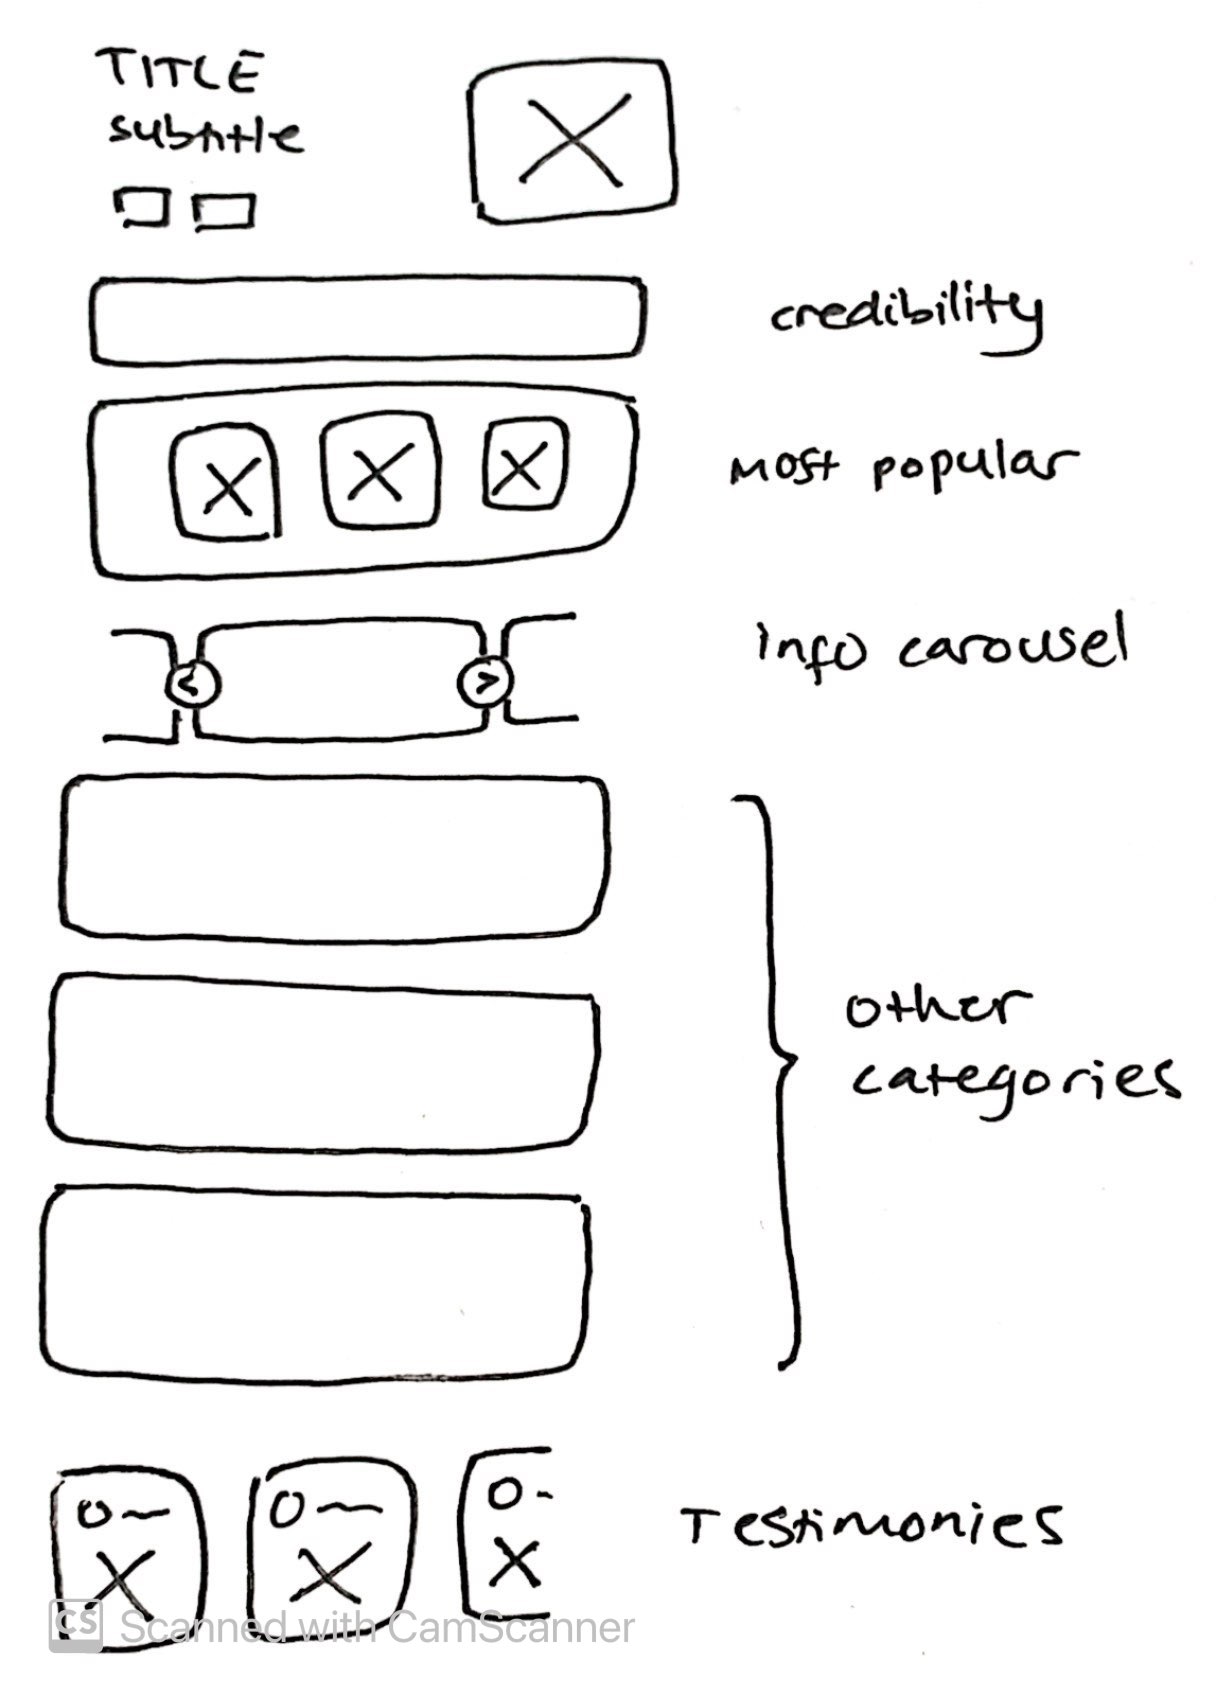 TITLE
subtitle
credibility
Most popular
<
>
info carousel
other
categories
Testimonies
CS Scanned with CamScanner